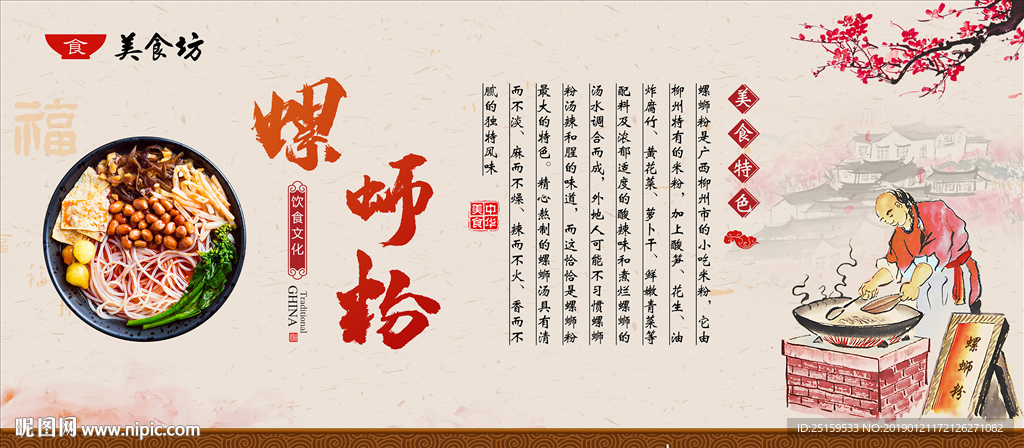 食
美食坊
福
螺
蛳
粉
饮食文化
Traditional
GHINA
中华
美食
美食特色
螺蛳粉是广西柳州市的小吃米粉，它由
柳州特有的米粉，加上酸笋、花生、油
炸腐竹、黄花菜、萝卜干、鲜嫩青菜等
配料及浓郁适度的酸辣味和煮烂螺蛳的
汤水调合而成，外地人可能不习惯螺蛳
粉汤辣和腥的味道，而这恰恰是螺蛳粉
最大的特色。精心熬制的螺蛳汤具有清
而不淡、麻而不燥、辣而不火、香而不
腻的独特风味
螺蛳粉
昵图网 www.nipic.com
ID:25159533 NO:20190121172126271082